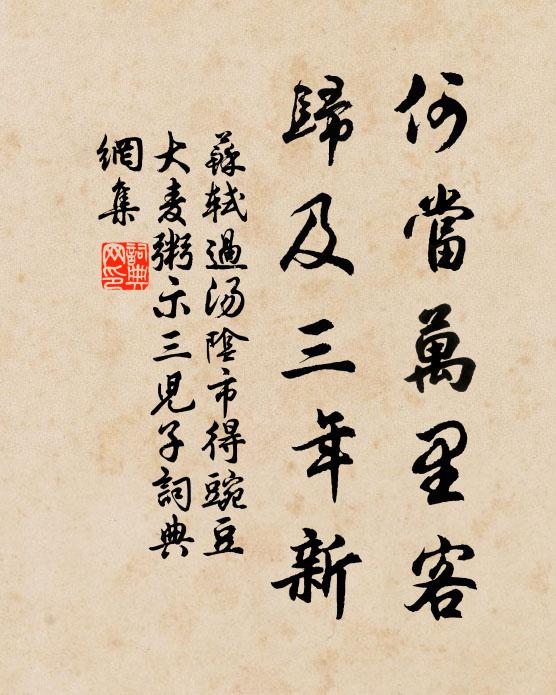 何當萬里客
歸及三年新
蘇軾過湯陰市得豌豆
大麦粥示三児子詞典
網集
詞典
网印